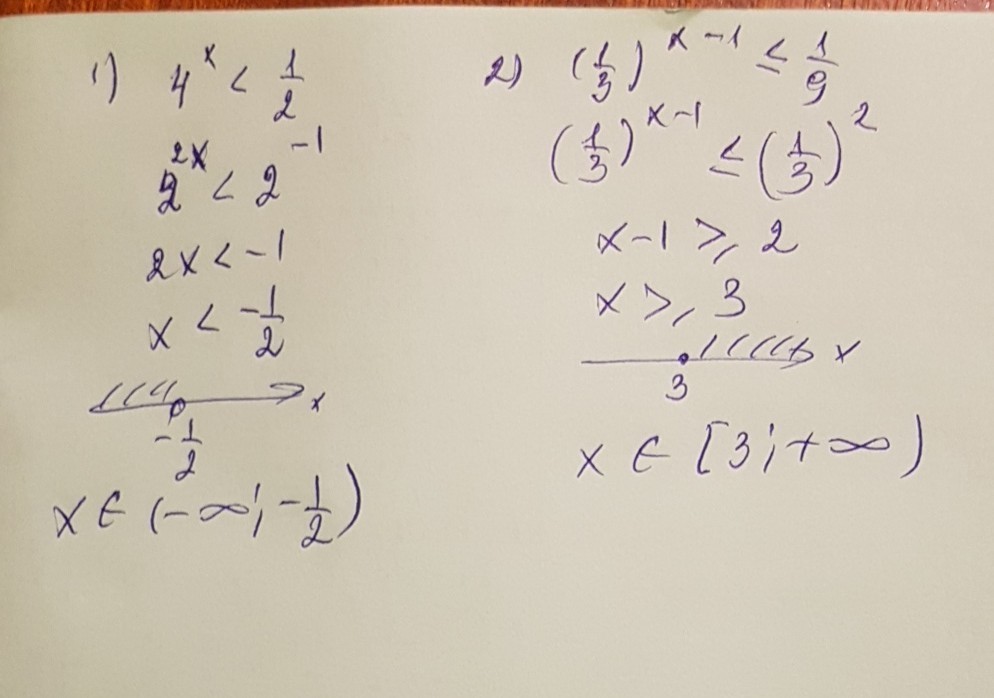 1) 4^x < 1/2
2^{2x} < 2^{-1}
2x < -1
x < -1/2
x
-1/2
x ∈ (-∞; -1/2)
2) (1/3)^{x-1} ≤ 1/9
(1/3)^{x-1} ≤ (1/3)^2
x-1 ≥ 2
x ≥ 3
x
3
x ∈ [3; +∞)